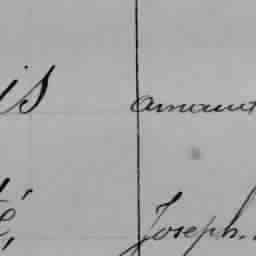 is amount
é, Joseph.